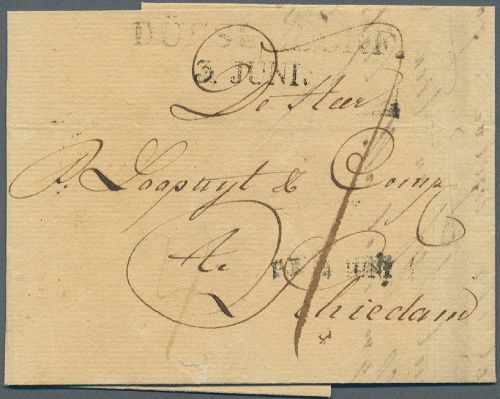 DÜSSELDORF.
3. JUNI.
De Heer
P. Loopuyt & Comp
te
JUNI
Schiedam